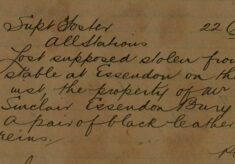 Supt Foster 22
All Stations
Lost supposed stolen from
stable at Essendon on the
inst, the property of
Sinclair Essendon Bury
A pair of black leather
reins.